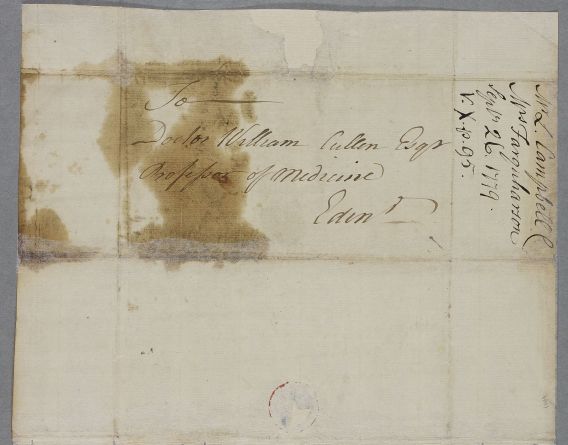 To
Doctor William Cullen Esqr
Professor of Medicine
Edinr
Mr L. Campbell
Mrs Farquharson
Septr 26. 1779.
V. X. p. 95.